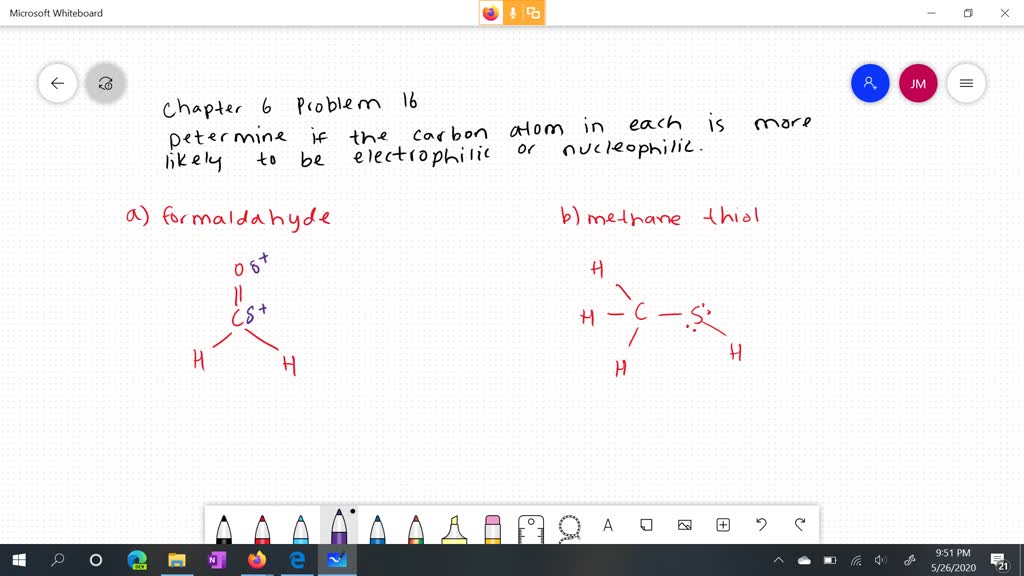 Microsoft Whiteboard
JM
Chapter 6 Problem 16
Determine if the carbon atom in each is more
likely to be electrophilic or nucleophilic.
a) formaldahyde
b) methane thiol
O δ+
C δ+
H H
H
H - C - S
H H
A
9:51 PM
5/26/2020
21